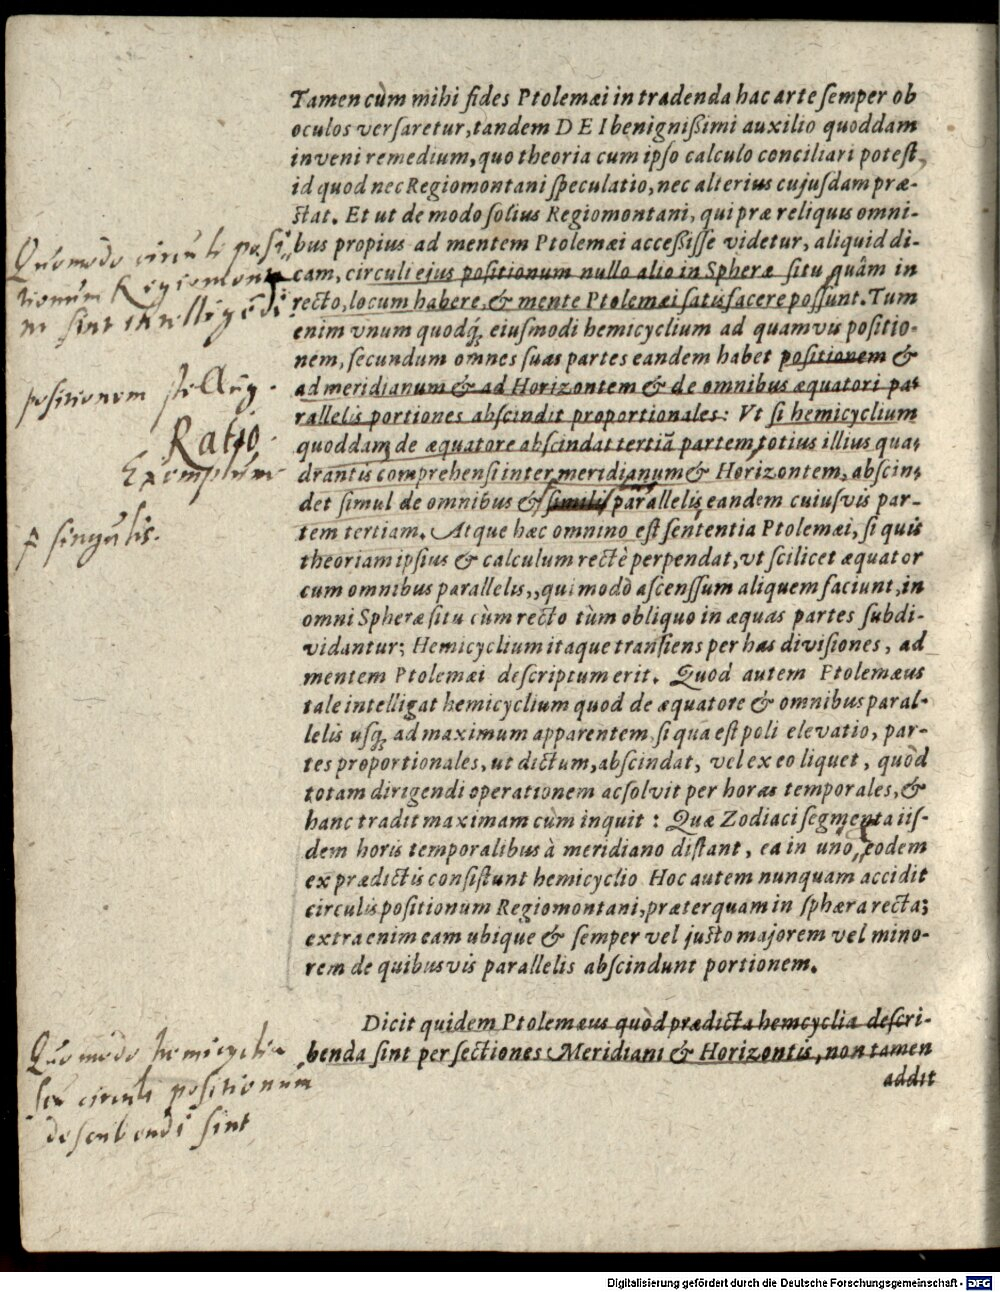 Tamen cùm mihi fides Ptolemæi in tradenda hac arte ſemper ob
oculos verſaretur, tandem DEI benignißimi auxilio quoddam
inveni remedium, quo theoria cum ipſo calculo conciliari poteſt,
id quod nec Regiomontani ſpeculatio, nec alterius cujuſdam præ-
ſtat. Et ut de modo ſolius Regiomontani, qui præ reliquis omni-
bus propius ad mentem Ptolemæi acceßiſſe videtur, aliquid di-
cam, circuli ejus poſitionum nullo alio in Sphæræ ſitu quâm in
recto, locum habere, & mente Ptolemæi ſatisfacere poſſunt. Tum
enim vnum quodq; eiuſmodi hemicyclium ad quamvis poſitio-
nem, ſecundum omnes ſuas partes eandem habet poſitionem &
ad meridianum & ad Horizontem & de omnibus æquatori pa-
rallelis portiones abſcindit proportionales: Vt ſi hemicyclium
quoddam de æquatore abſcindat tertiā partem totius illius qua-
drantis comprehenſi inter meridianum & Horizontem, abſcin-
det ſimul de omnibus & ſimilis parallelis eandem cuiuſvis par-
tem tertiam. Atque hæc omnino eſt ſententia Ptolemæi, ſi quis
theoriam ipſius & calculum rectè perpendat, vt ſcilicet æquator
cum omnibus parallelis,, qui modò aſcenſſum aliquem faciunt, in
omni Sphæræ ſitu cùm recto tùm obliquo in æquas partes ſubdi-
vidantur; Hemicyclium itaque tranſiens per has diviſiones, ad
mentem Ptolemæi deſcriptum erit. Quod autem Ptolemæus
tale intelligat hemicyclium quod de æquatore & omnibus paral-
lelis uſq; ad maximum apparentem, ſi qua eſt poli elevatio, par-
tes proportionales, ut dictum, abſcindat, vel ex eo liquet, quòd
totam dirigendi operationem acſolvit per horas temporales, &
hanc tradit maximam cùm inquit: Quæ Zodiaci ſegmenta iiſ-
dem horis temporalibus à meridiano diſtant, ea in uno, eodem
ex prædictis conſiſtunt hemicyclio Hoc autem nunquam accidit
circulis poſitionum Regiomontani, præterquam in ſphæra recta;
extra enim eam ubique & ſemper vel juſto majorem vel mino-
rem de quibusvis parallelis abſcindunt portionem.
Dicit quidem Ptolemæus quòd prædicta hemcyclia deſcri-
benda ſint per ſectiones Meridiani & Horizontis, non tamen
addit
Quomodo circuli posi
tionum Regiomonta
ni sint intelligēdi
positionem
Ratio.
Exemplum
singulis.
Quomodo hemicyclia
seu circuli positionum
describendi sint
Digitalisierung gefördert durch die Deutsche Forschungsgemeinschaft - DFG